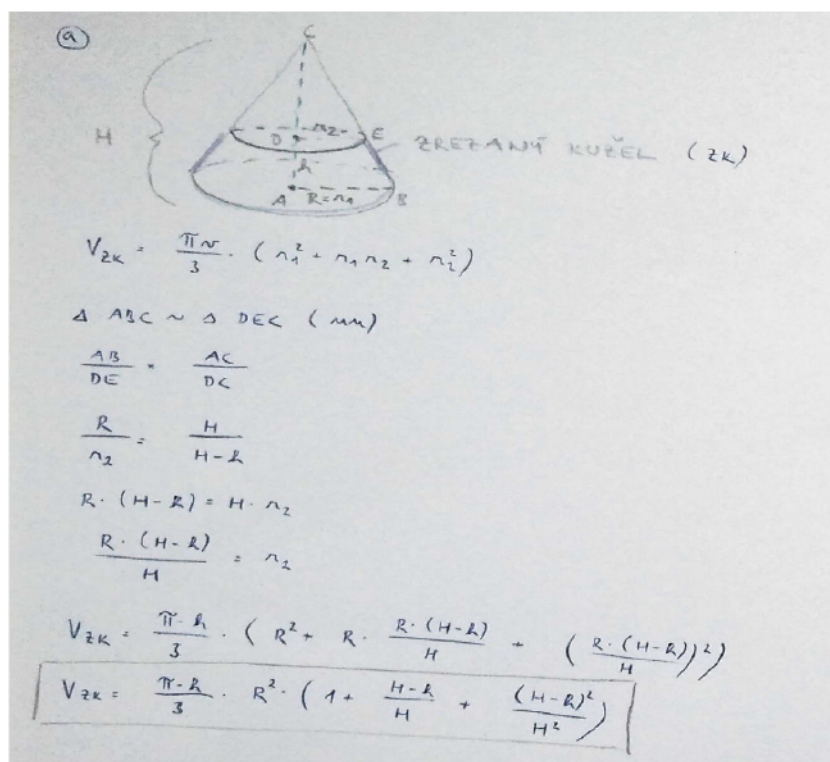 a
C
H
D r₂ E
ZREZANÝ KUŽEL (ZK)
h
A R=r₁ B
V_ZK = πv/3 · (r₁² + r₁r₂ + r₂²)
Δ ABC ~ Δ DEC (uu)
AB/DE = AC/DC
R/r₂ = H/(H-h)
R·(H-h) = H·r₂
R·(H-h)/H = r₂
V_ZK = π·h/3 · (R² + R · R·(H-h)/H + (R·(H-h)/H)²)
V_ZK = π·h/3 · R² · (1 + (H-h)/H + (H-h)²/H²)